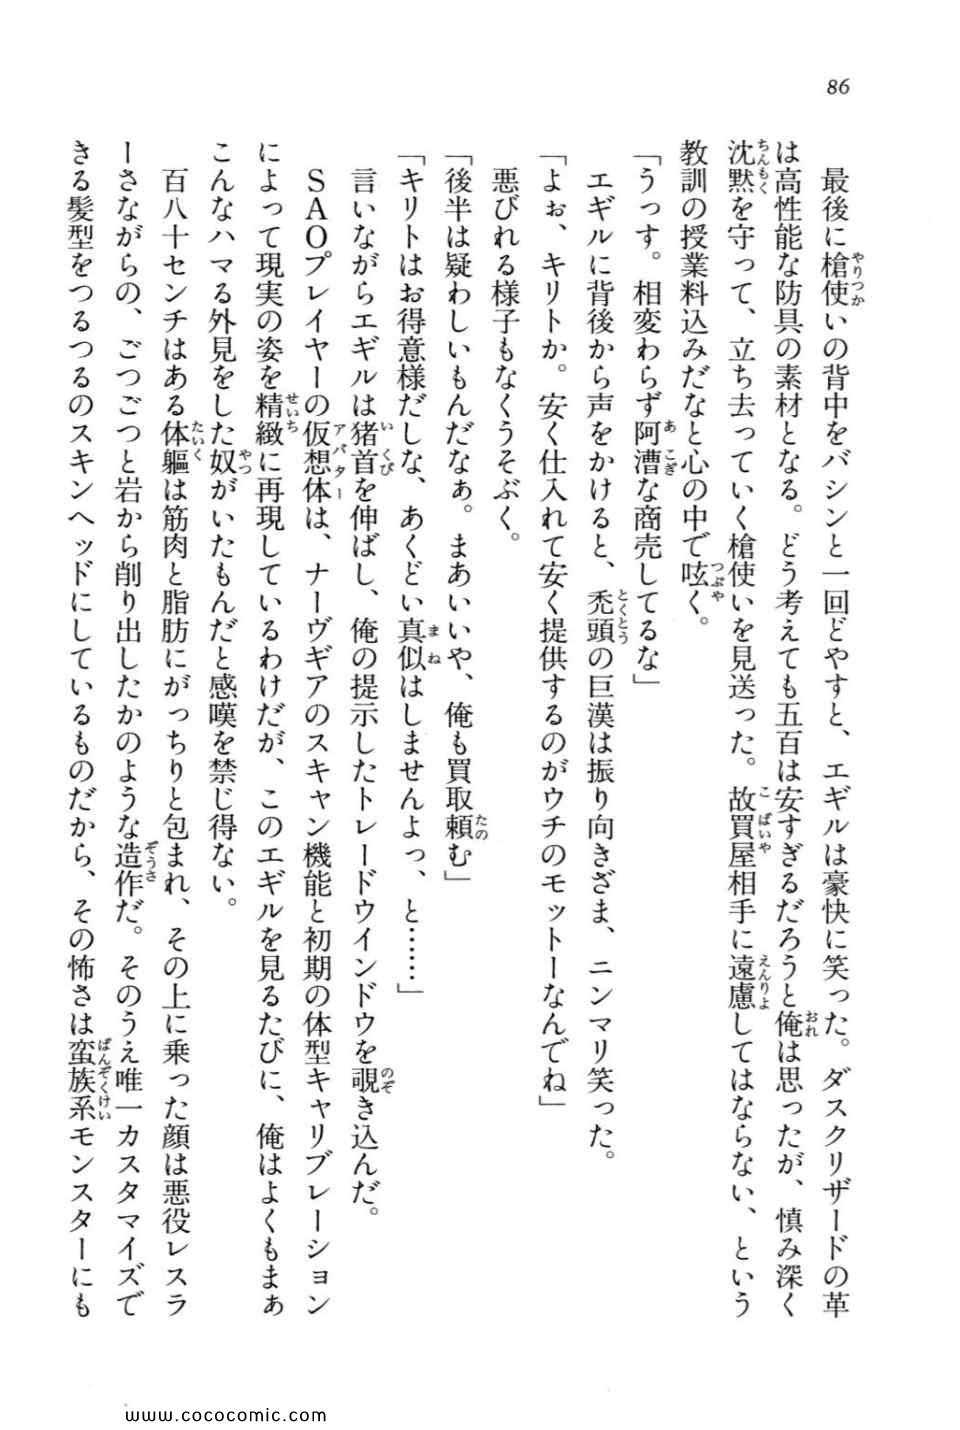 86
最後に槍使いの背中をバシンと一回どやすと、エギルは豪快に笑った。ダスクリザードの革
は高性能な防具の素材となる。どう考えても五百は安すぎるだろうと俺は思ったが、慎み深く
沈黙を守って、立ち去っていく槍使いを見送った。故買屋相手に遠慮してはならない、という
教訓の授業料込みだなと心の中で呟く。
「うっす。相変わらず阿漕な商売してるな」
エギルに背後から声をかけると、禿頭の巨漢は振り向きざま、ニンマリ笑った。
「よぉ、キリトか。安く仕入れて安く提供するのがウチのモットーなんでね」
悪びれる様子もなくうそぶく。
「後半は疑わしいもんだなぁ。まあいいや、俺も買取頼む」
「キリトはお得意様だしな、あくどい真似はしませんよっ、と……」
言いながらエギルは猪首を伸ばし、俺の提示したトレードウインドウを覗き込んだ。
ＳＡＯプレイヤーの仮想体は、ナーヴギアのスキャン機能と初期の体型キャリブレーション
によって現実の姿を精緻に再現しているわけだが、このエギルを見るたびに、俺はよくもまぁ
こんなハマる外見をした奴がいたもんだと感嘆を禁じ得ない。
百八十センチはある体軀は筋肉と脂肪にがっちりと包まれ、その上に乗った顔は悪役レスラ
ーさながらの、ごつごつと岩から削り出したかのような造作だ。そのうえ唯一カスタマイズで
きる髪型をつるつるのスキンヘッドにしているものだから、その怖さは蛮族系モンスターにも
www.cococomic.com/